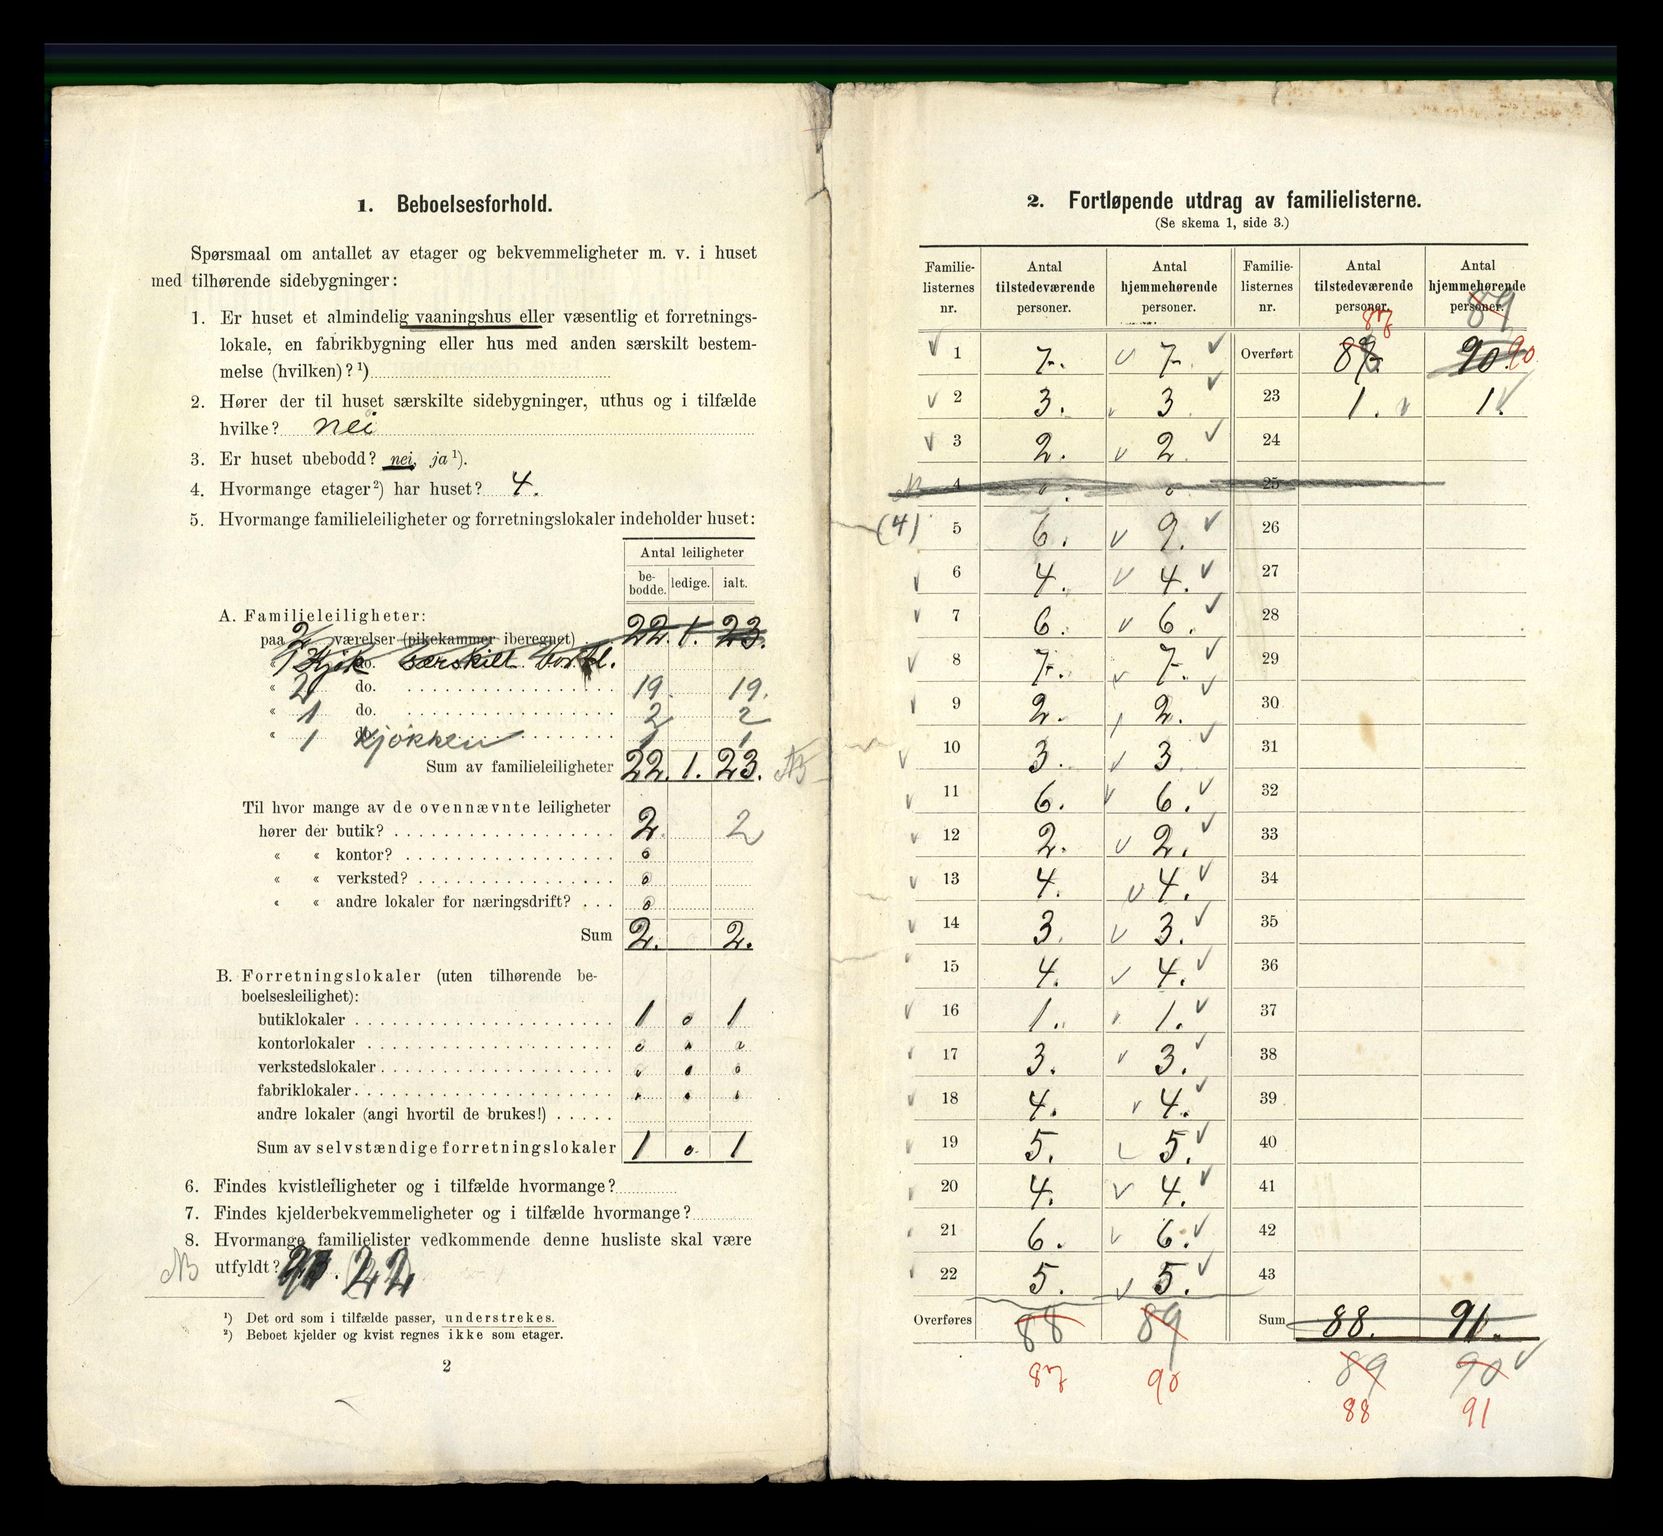 1. Beboelsesforhold.
Spørsmaal om antallet av etager og bekvemmeligheter m. v. i huset
med tilhørende sidebygninger:
1. Er huset et almindelig vaaningshus eller væsentlig et forretnings-
lokale, en fabrikbygning eller hus med anden særskilt bestem-
melse (hvilken)? ¹)
2. Hører der til huset særskilte sidebygninger, uthus og i tilfælde
hvilke? nei
3. Er huset ubebodd? nei, ja ¹).
4. Hvormange etager ²) har huset? 4.
5. Hvormange familieleiligheter og forretningslokaler indeholder huset:
Antal leiligheter
be-
bodde. ledige. ialt.
A. Familieleiligheter:
paa 2 værelser (pikekammer iberegnet) 22. 1. 23.
" 1 Kjøk do. særskilt bortl.
« 2 do. 19. 19.
« 1 do. 2 2
« 1 Kjøkken 1 1
Sum av familieleiligheter 22. 1. 23. NB
Til hvor mange av de ovennævnte leiligheter
hører der butik? 2. 2
« « kontor? 0
« « verksted? 0
« « andre lokaler for næringsdrift? 0
Sum 2. 2.
B. Forretningslokaler (uten tilhørende be-
boelsesleilighet):
butiklokaler 1 0 1
kontorlokaler 0 0 0
verkstedslokaler 0 0 0
fabriklokaler
andre lokaler (angi hvortil de brukes!)
Sum av selvstændige forretningslokaler 1 0. 1
6. Findes kvistleiligheter og i tilfælde hvormange?
7. Findes kjelderbekvemmeligheter og i tilfælde hvormange?
8. Hvormange familielister vedkommende denne husliste skal være
NB utfyldt? 23. 22
¹) Det ord som i tilfælde passer, understrekes.
²) Beboet kjelder og kvist regnes ikke som etager.
2
2. Fortløpende utdrag av familielisterne.
(Se skema 1, side 3.)
Familie-
listernes
nr.
Antal
tilstedeværende
personer.
Antal
hjemmehørende
personer.
Familie-
listernes
nr.
Antal
tilstedeværende
personer.
Antal
hjemmehørende
personer.
87 89
1 7. 7. Overført 87. 90. 90
2 3. 3 23 1. 1.
3 2. 2 24
NB 4 0. 0 25
(4) 5 6. 9. 26
6 4. 4. 27
7 6. 6. 28
8 7. 7. 29
9 2. 2. 30
10 3. 3 31
11 6. 6. 32
12 2. 2. 33
13 4. 4. 34
14 3. 3. 35
15 4. 4. 36
16 1. 1. 37
17 3. 3. 38
18 4. 4. 39
19 5. 5. 40
20 4. 4. 41
21 6. 6. 42
22 5. 5. 43
Overføres 88 89 Sum 88. 91.
87 90 89 90
88 91